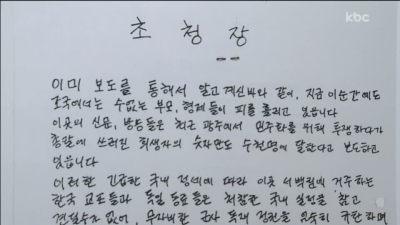 kbc
초청장
이미 보도를 통해서 알고 계신바와 같이, 지금 이순간에도
조국에서는 수없는 부모, 형제들이 피를 흘리고 있읍니다
이곳의 신문, 방송들은 최근 광주에서 민주화를 위해 투쟁하다가
총탄에 쓰러진 희생자의 숫자만도 수천명에 달한다고 보도하고
있읍니다
이러한 긴급한 국내 정세에 따라 이곳 서백림에 거주하는
한국 교포들과 독일 동료들은 처참한 국내 실정을 참고
견딜수가 없어, 무자비한 군사 독재 정권을 엄숙히 규탄하며